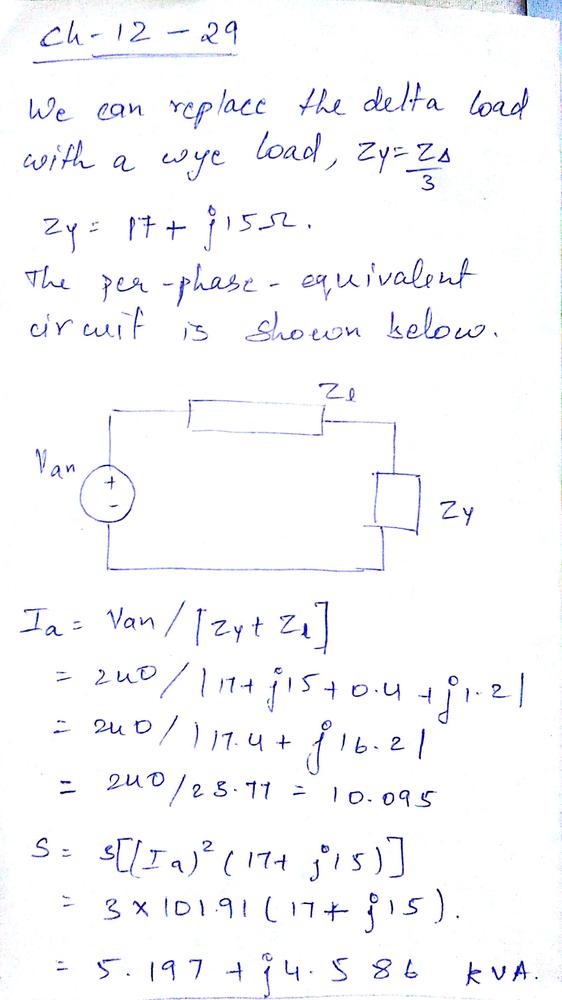 Ch-12-29
We can replace the delta load
with a wye load, Zy = ZΔ/3
Zy = 17 + j15Ω.
The per-phase-equivalent
circuit is shown below.
Zl
Van
+
-
Zy
Ia = Van/[Zy + Zl]
= 240/|17+j15+0.4+j1.2|
= 240/|17.4 + j16.2|
= 240/23.77 = 10.095
S = 3[(Ia)²(17+j15)]
= 3×101.91(17+j15).
= 5.197 + j4.586 kVA.